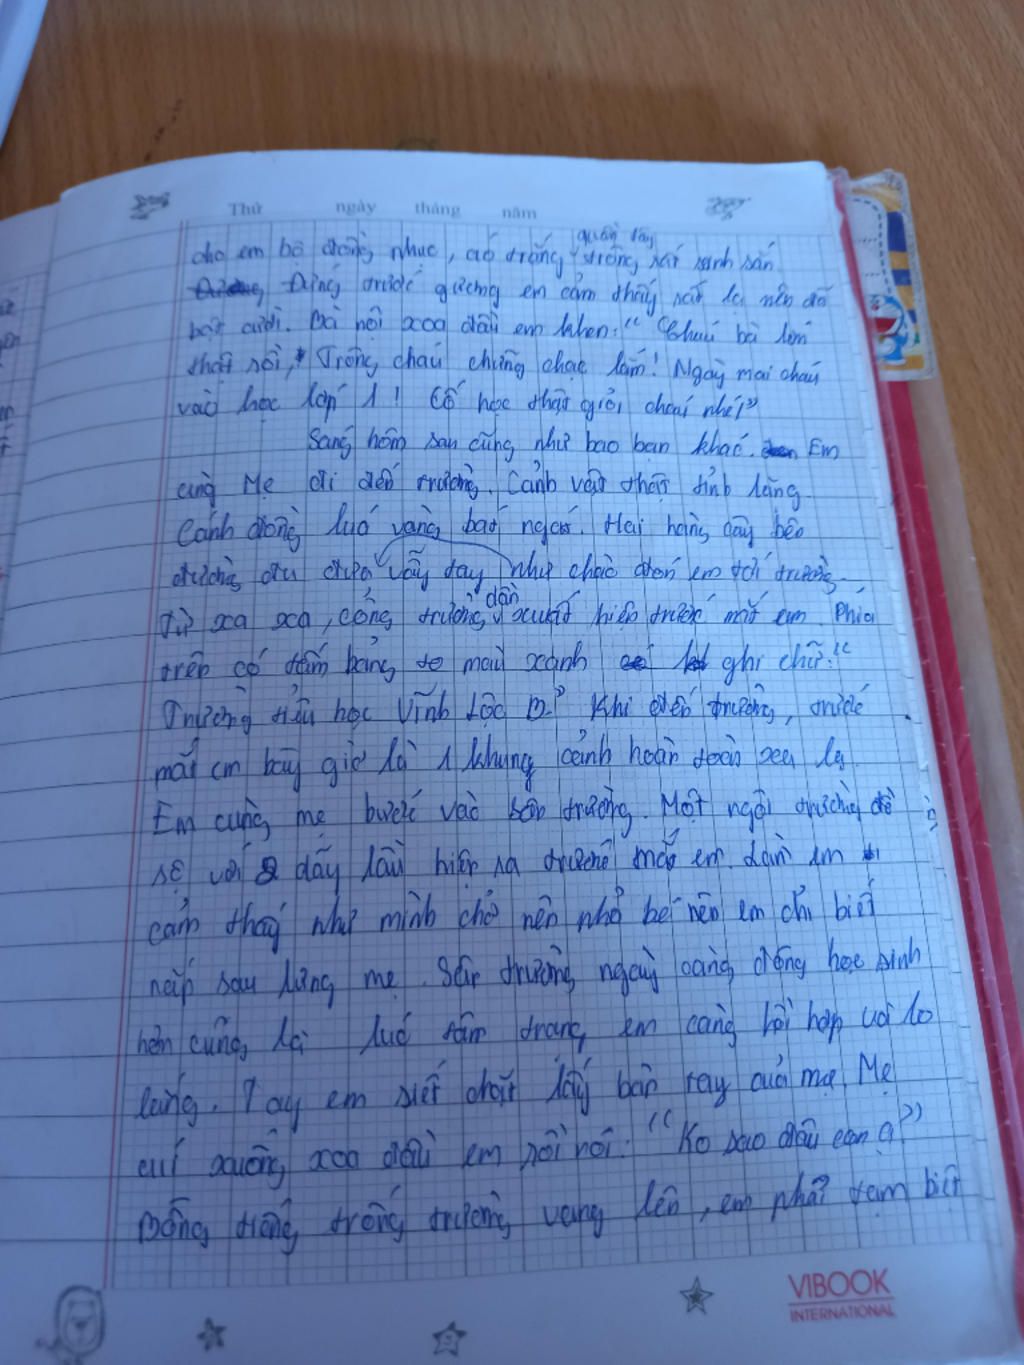 Thứ ngày tháng năm
quần tây
cho em bộ đồng phục, áo trắng trông rất xinh xắn
Đứng trước gương em cảm thấy rất lạ nên đã
bật cười. Bà nội xoa đầu em khen: " Cháu bà lớn
thật rồi, Trông cháu chững chạc lắm! Ngày mai cháu
vào học lớp 1! Cố học thật giỏi cháu nhé!"
Sáng hôm sau cũng như bao bạn khác. Em
cùng Mẹ đi đến trường. Cảnh vật thật tĩnh lặng
Cánh đồng lúa vàng bát ngát. Hai hàng cây bên
đường đu đưa vẫy tay như chào đón em tới trường.
dần
Từ xa xa, cổng trường xuất hiện trước mắt em. Phía
trên có tấm bảng to màu xanh ghi chữ: "
Trường tiểu học Vĩnh Lộc B." Khi đến trường, trước
mắt em bây giờ là 1 khung cảnh hoàn toàn xa lạ
Em cùng mẹ bước vào sân trường. Một ngôi trường đồ
sộ với dãy lầu hiện ra trước mắt em. Làm em
cảm thấy như mình trở nên nhỏ bé nên em chỉ biết
nấp sau lưng mẹ. Sân trường ngày càng đông học sinh
hơn cũng là lúc tâm trạng em càng hồi hộp và lo
lắng. Tay em siết chặt lấy bàn tay của mẹ. Mẹ
cúi xuống xoa đầu em rồi nói: "Ko sao đâu con ạ!"
Bỗng tiếng trống trường vang lên, em phải tạm biệt
VIBOOK
INTERNATIONAL